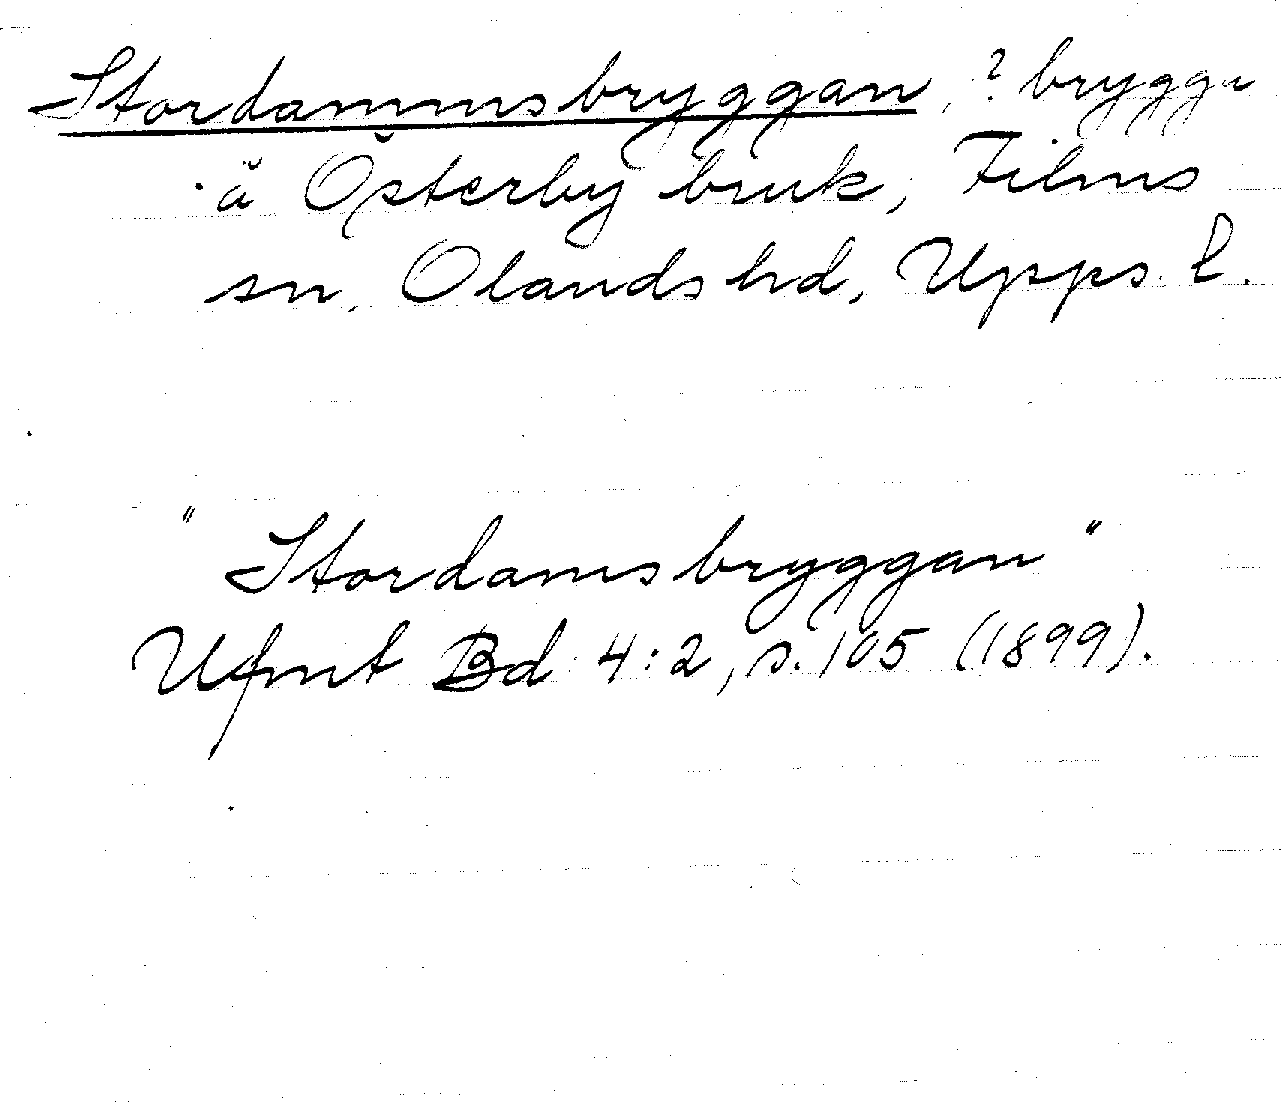 Stordammsbryggan, ? brygga
å Österby bruk, Films
sn, Olands hd, Upps. l.
"Stordamsbryggan"
Ufmt Bd 4:2, s. 105 (1899).